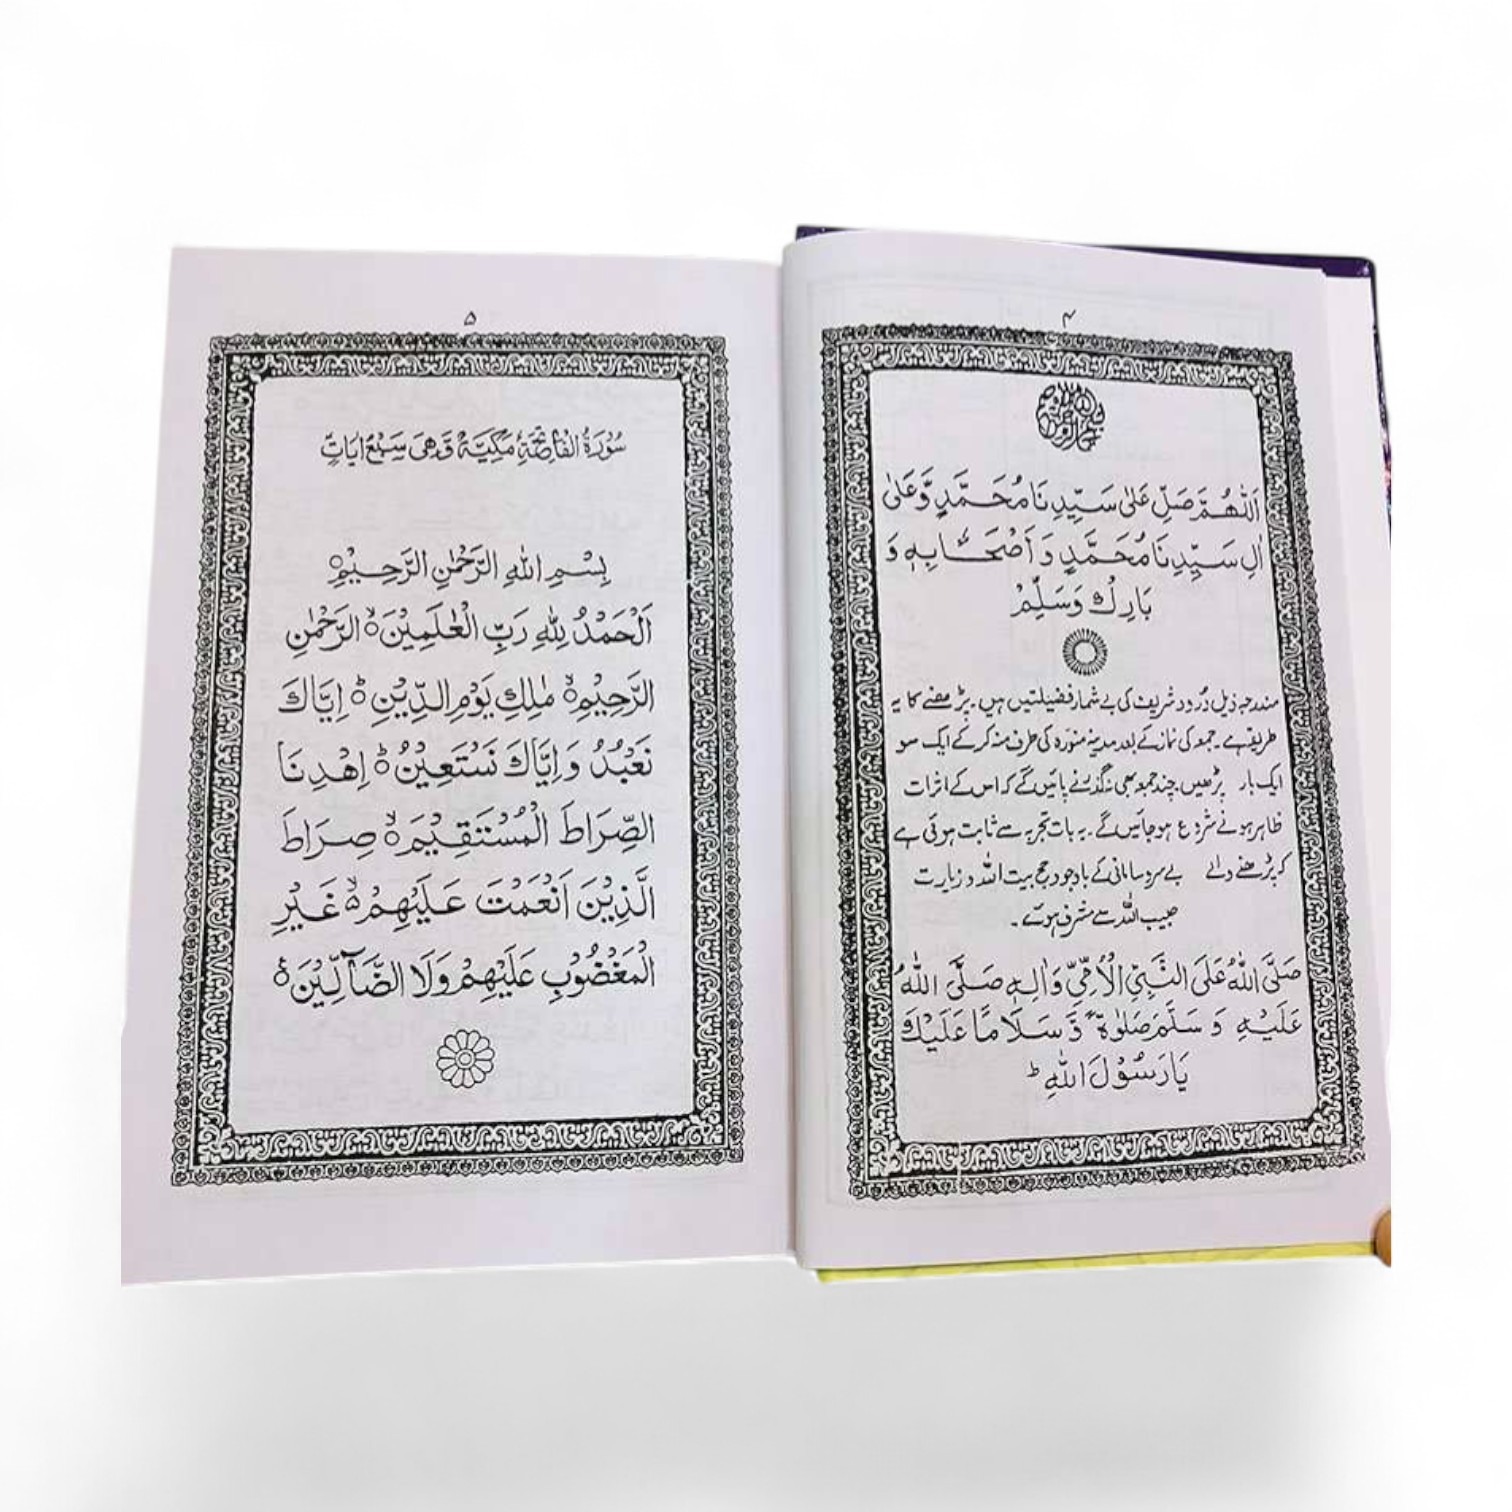 ۴
اَللّٰهُمَّ صَلِّ عَلٰى سَيِّدِنَا مُحَمَّدٍ وَّعَلٰى
اٰلِ سَيِّدِنَا مُحَمَّدٍ وَ اَصْحَابِهٖ وَ
بَارِكْ وَسَلِّمْ
مندرجہ ذیل دُرود شریف کی بے شمار فضیلتیں ہیں۔ پڑھنے کا یہ
طریقہ ہے۔ جمعہ کی نماز کے بعد مدینہ منورہ کی طرف منہ کر کے ایک سو
ایک بار پڑھیں۔ چند جمعہ بھی نہ گذرنے پائیں گے کہ اس کے اثرات
ظاہر ہونے شروع ہو جائیں گے۔ یہ بات تجربہ سے ثابت ہوئی ہے
کہ پڑھنے والے بے سروسامانی کے باوجود حج بیت اللہ و زیارت
حبیب اللہ سے مشرف ہوئے۔
صَلَّى اللّٰهُ عَلَى النَّبِيِّ الْاُمِّيِّ وَاٰلِهٖ صَلَّى اللّٰهُ
عَلَيْهِ وَ سَلَّمَ صَلٰوةً وَّ سَلَامًا عَلَيْكَ
يَا رَسُوْلَ اللّٰهِ ؕ
۵
سُوْرَةُ الْفَاتِحَةِ مَكِّيَّةٌ وَّهِىَ سَبْعُ اٰيَاتٍ
بِسْمِ اللّٰهِ الرَّحْمٰنِ الرَّحِيْمِ
اَلْحَمْدُ لِلّٰهِ رَبِّ الْعٰلَمِيْنَ ۙ الرَّحْمٰنِ
الرَّحِيْمِ ۙ مٰلِكِ يَوْمِ الدِّيْنِ ؕ اِيَّاكَ
نَعْبُدُ وَاِيَّاكَ نَسْتَعِيْنُ ؕ اِهْدِنَا
الصِّرَاطَ الْمُسْتَقِيْمَ ۙ صِرَاطَ
الَّذِيْنَ اَنْعَمْتَ عَلَيْهِمْ ۙ غَيْرِ
الْمَغْضُوْبِ عَلَيْهِمْ وَلَا الضَّآلِّيْنَ